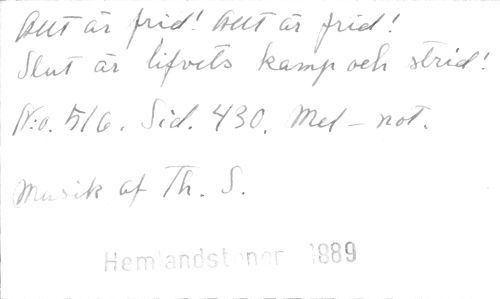 Allt är frid! Allt är frid!
Slut är lifvets kamp och strid!
N:o. 516. Sid. 430. Mel-not.
Musik af Th. S.
Hemlandstoner 1889